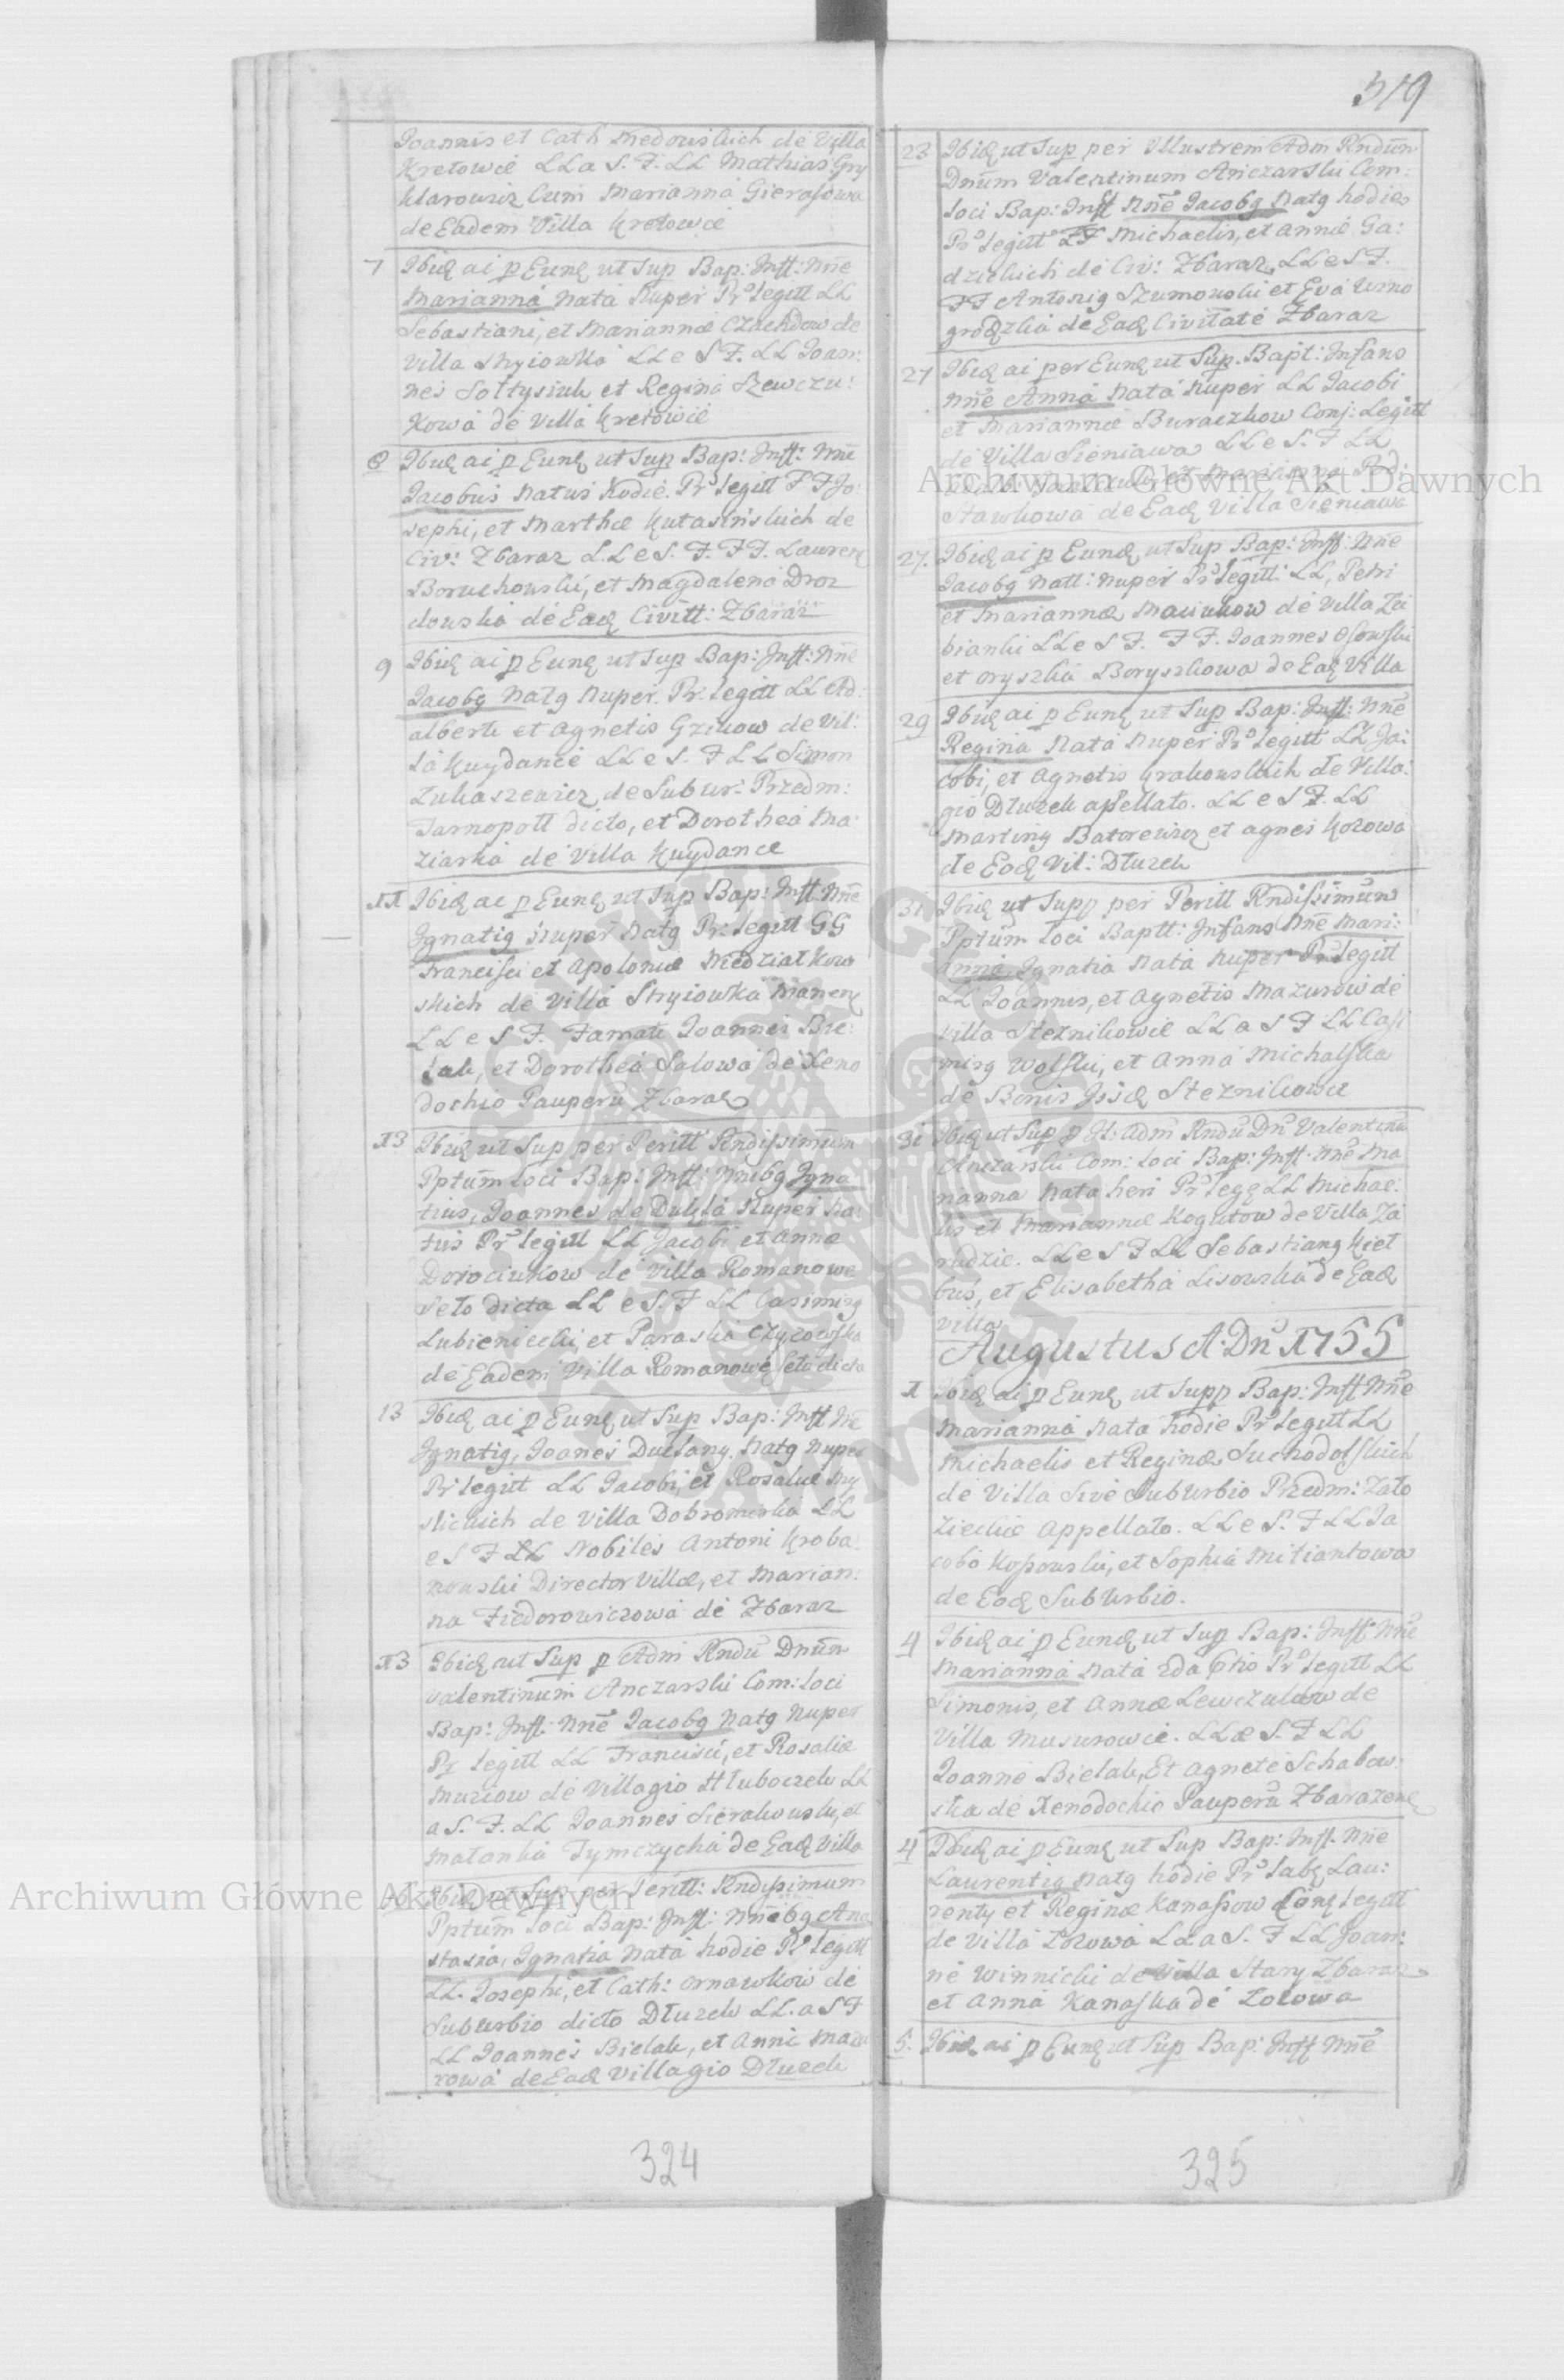 319
Joannis et Cath Niedowiskich de Villa
Kretowce LL a S. F. LL Mathias Gry
klarowicz Cum Marianna Gierasowa
de Eadem Villa Kretowce
7 Ibid ai p Eund ut Sup Bap: Inft: Nne
Marianna Nata Nuper Pr Legitt LL
Sebastiani, et Mariannæ Czachdow de
Villa Stryiowka LL e S F. LL Joan:
nes Sołtysiuk et Regina Szewczu:
kowa de Villa Kretowce
8 Ibid ai p Eund ut Sup Bap: Inft: Nne
Jacobus Natus Hodie Pr Legitt F F Jo:
sephi, et Marthæ Kutasinskich de
Civ: Zbaraz LL e S. F. F F. Laurent
Boruchowski, et Magdalena Droz
dowska de Ead Civitt: Zbaraz
9 Ibid ai p Eund ut Sup Bap: Inft: Nne
Jacobg Natg Nuper Pr. Legitt LL Ad:
alberti et Agnetis Gzikow de Vil:
la Kuydance LL e S. F LL Simon
Łukaszewicz de Subur: Przedm:
Tarnopoll dicto, et Dorothea Ma:
ziarka de Villa Kuydance
11 Ibid ai p Eund ut Sup Bap: Inft Nne
Ignatig Nuper Natg Pr: Legitt GG
Francisci et Apoloniæ Niedziałkow
skich de Villa Stryiowka Manent
LL e S F. Famati Joannes Bie:
lak, et Dorothea Salowa de Xeno
dochio Pauperu Zbaraz
13 Ibid ut Sup per Peritt Rndissimum
Pptum Loci Bap: Inft: Nnibg Igna:
tius, Joannes de Dukla Nuper Na:
tus Pr Legitt LL Jacobi et Annæ
Dorociukow de Villa Romanowe
Sieło dicta LL e S. F LL Casimirg
Lubieniecki, et Paraska Czyzowska
de Eadem Villa Romanowe Sieło dicta
13 Ibid ai p Eund ut Sup Bap: Inft Nne
Ignatig, Joanes Duclang. Natg Nuper
Pr Legitt LL Jacobi, et Rosaliæ My
slickich de Villa Dobromirka LL
e S F LL Nobiles Antoni Kroba:
nowski Director Villæ, et Marian:
na Fiedorowiczowa de Zbaraz
13 Ibid ut Sup p Adm Rndu Dnum
Valentinum Anczarski Com: Loci
Bap: Inft: Nne Jacobg Natg Nuper
Pr Legitt LL Francisci, et Rosaliæ
Muziow de Villagio Hłuboczek LL
a S. F. LL Joannes Sierakowski, et
Małanka Tymczycha de Ead Villa
Ibid ut Sup per Peritt: Rndissimum
Pptum Loci Bap: Inft: Nnibg Ana
stasia, Ignatia Nata hodie Pr Legitt
LL. Josephi, et Cath: Ornawkow de
Suburbio dicto Dłuzek LL. a S F
LL Joannes Bielak, et Anna Mazu
rowa de Ead Villagio Dłuzek
324
23 Ibid ut Sup per Illustrem Adm Rndum
Dnum Valentinum Anczarski Com:
Loci Bap: Inft Nne Jacobg Natg hodie
Pr Legitt F F Michaelis, et Annæ Ga:
dzickich de Civ: Zbaraz, LL e S F.
F F Antonig Szumowski et Eva Wino
grodzka de Ead Civitate Zbaraz
27 Ibid ai per Eund ut Sup. Bapt: Infans
Nne Anna Nata Nuper LL Jacobi
et Mariannæ Buraczkow Conj: Legitt
de Villa Sieniawa LL e S. F LL
stawkowa de Ead Villa Sieniawa
27. Ibid ai p Eund ut Sup Bap: Inft: Nne
Jacobg Natt: Nuper Pr Legitt: LL, Petri
et Mariannæ Maciukow de Villa Zu
bianki LL e S F. F F. Joannes Osowski
et Oryszka Boryszkowa de Ead Villa
29 Ibid ai p Eund ut Sup Bap: Inft: Nne
Regina Nata Nuper Pr Legitt LL Ja:
cobi, et Agnetis Krakowskich de Villa:
gio Dłuzek apellato. LL e S F. LL
Marting Batorewicz et Agnes Kozowa
de Ead Vil: Dłuzek
31 Ibid ut Supp per Peritt Rndissimum
Pptum Loci Baptt: Infans Nne Mari:
anna Ignatia Nata Nuper Pr Legitt
LL Joannis, et Agnetis Mazurow de
Villa Steznikowce LL a S F LL Casi
mirg Wolski, et Anna Michalska
de Bonis Jisd Steznikowce
31 Ibid ut Sup p Il: Adm Rndu Dn Valentinu
Anczarski Com: Loci Bap: Inft: Nne Ma
rianna Nata heri Pr Legt LL Michae:
lis et Mariannæ Kogutow de Villa Za
rudzie. LL e S F LL Sebastiang Kieł
bus, et Elisabetha Lisowska de Ead
Villa
Augustus A Dni 1755
1 Ibid ai p Eund ut Supp Bap: Inft Nne
Marianna Nata hodie Pr Legitt LL
Michaelis et Reginæ Suchodolskich
de Villa Sive Suburbio Przedm: Zało
zieckie Appellato. LL e S. F LL Ja
cobo Kossowski, et Sophia Mitiantowa
de Ead Suburbio.
4 Ibid ai p Eund ut Sup Bap: Inft Nne
Marianna Nata 2da hio Pr Legitt LL
Simonis, et Annæ Lewczukow de
Villa Musurowce. LL e S. F LL
Joanne Bielak, Et Agnete Schabow
ska de Xenodochio Pauperu Zbarazens
4 Ibid ai p Eund ut Sup Bap: Inft. Nne
Laurentig Natg hodie Pr Lab Lau:
renty et Reginæ Kanassow Coni Legitt
de Villa Łozowa LL a S. F LL Joan:
ne Winnicki de Villa Stary Zbaraz
et Anna Kanaska de Łozowa
5. Ibid ai p Eund ut Sup Bap: Inft Nne
325
Archiwum Główne Akt Dawnych
Archiwum Główne Akt Dawnych